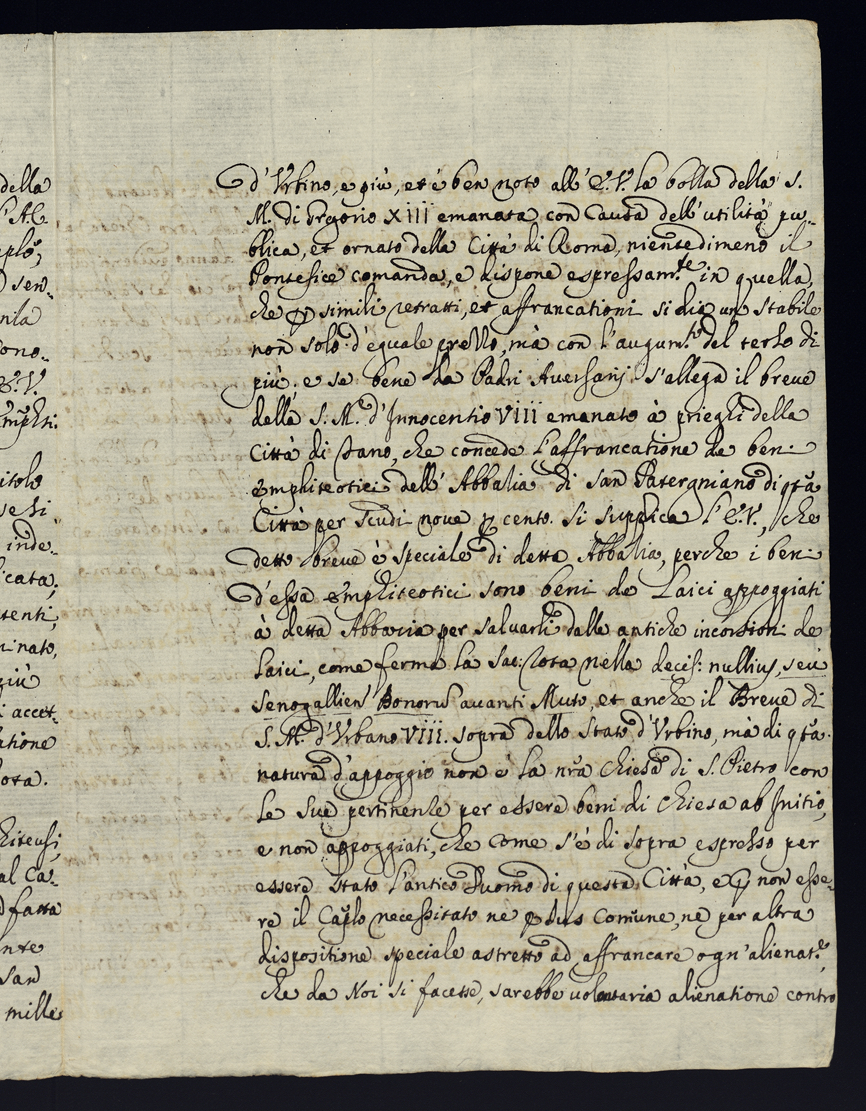 della
l'Ab.
sen-
nla
cono-
E.V.
Emphti.
itolo
inde-
icata,
tenti,
minato,
più
i accet-
atione
Rota.
hiteusi,
al Ca-
fatta
ente
San
mille
d'Urbino, e più, et è ben noto all'E.V. la bolla della S.
M. di Gregorio XIII emanata con Causa dell'utilità pu-
blica, et ornato della Città di Roma, nientedimeno il
Pontefice comanda, e dispone espressam.te in quella,
che p simili retratti, et affrancationi si dia un stabile
non solo d'eguale prezzo, mà con l'augum.to del terzo di
più, e se bene da Padri Aversarij s'allega il breve
della S.M. d'Innocentio VIII emanato à prieghi della
Città di Fano, che concede l'affrancatione de beni
emphiteotici dell'Abbatia di San Patergniano di qta
Città per scudi nove p cento. Si supplica l'E.V., che
detto breve è speciale di detta Abbatia, perche i beni
d'essa emphiteotici sono beni de Laici appoggiati
à detta Abbatia per salvarli dalle antiche incorsioni de
laici, come ferma la Sac: Rota nella decis: nullius, seù
Senogallien Bonorũ avanti Muto, et anche il Breve di
S.M. d'Urbano VIII. sopra dello Stato d'Urbino, mà di qta
natura d'appoggio non è la nra Chiesa di S. Pietro con
le sue pertinenze per essere beni di Chiesa ab Initio,
e non appoggiati, che come s'è di sopra espresso per
essere stato l'antico Duomo di questa Città, e p non esse-
re il Caplo necessitato ne p Ius Comune, ne per altra
dispositione speciale astretto ad affrancare ogn'alienat.e,
che da Noi si facesse, sarebbe volontaria alienatione contro